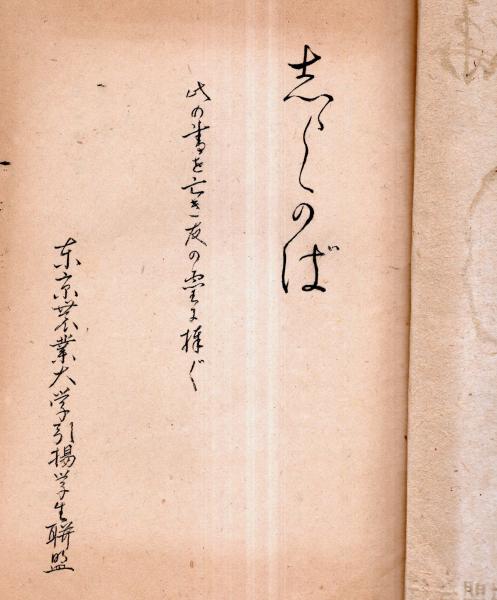 此の書を亡き友の霊に捧ぐ
東京農業大学引揚学生聯盟